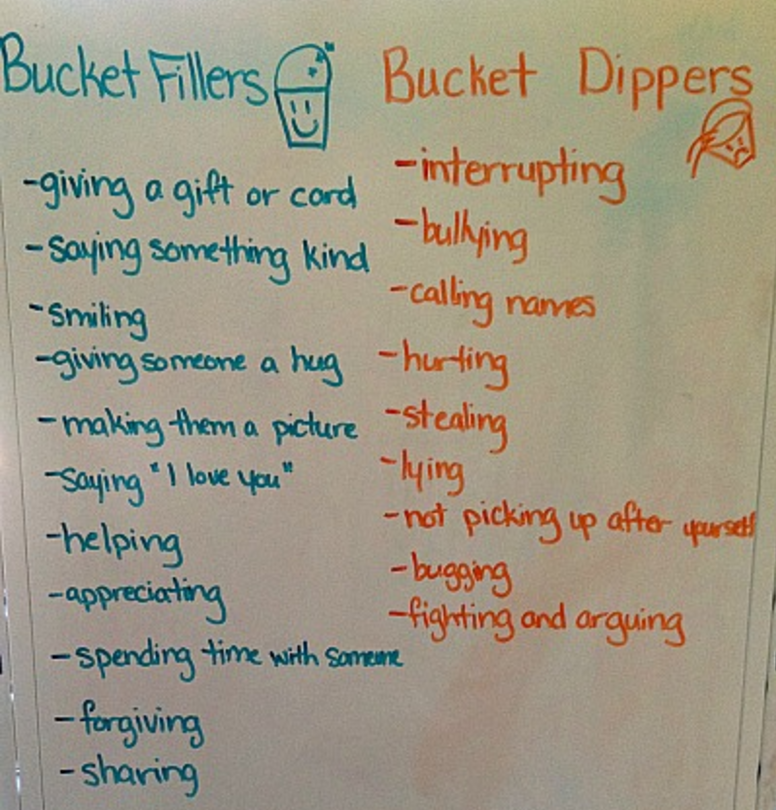 Bucket Fillers
-giving a gift or card
-saying something kind
-smiling
-giving someone a hug
-making them a picture
-saying "I love you"
-helping
-appreciating
-spending time with someone
-forgiving
-sharing
Bucket Dippers
-interrupting
-bullying
-calling names
-hurting
-stealing
-lying
-not picking up after yourself
-bugging
-fighting and arguing